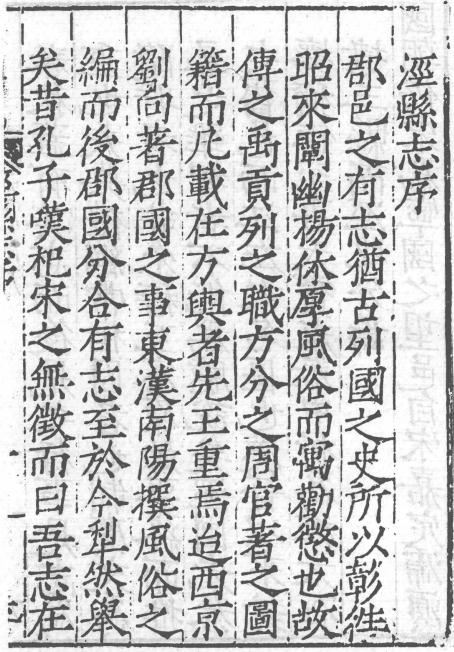 涇縣志序
郡邑之有志猶古列國之史所以彰徃
昭來闡幽揚休厚風俗而寓勸懲也故
傳之禹貢列之職方分之周官著之圖
籍而凡載在方輿者先王重焉迨西京
劉向著郡國之事東漢南陽撰風俗之
編而後郡國分合有志至於今犁然舉
矣昔孔子嘆杞宋之無徵而曰吾志在